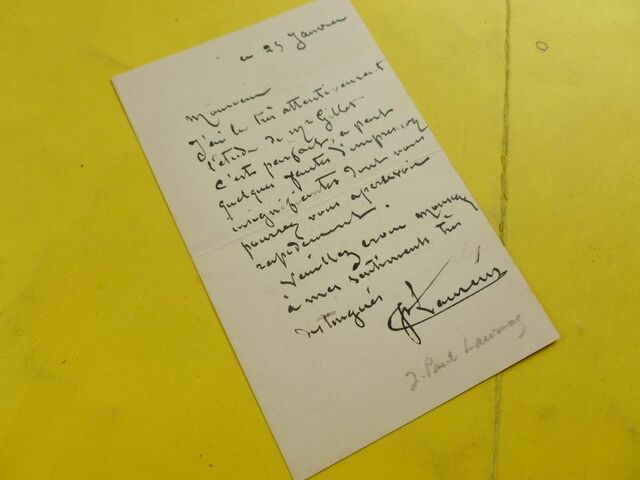 ce 25 Janvier
Monsieur
J'ai lu très attentivement
l'étude de Mr Gillet
C'est parfait, à part
quelques fautes d'impression
insignifiantes dont vous
pourrez vous apercevoir
rapidement.
Veuillez croire monsieur
à mes sentiments très
distingués
JP Laurens
J. Paul Laurens